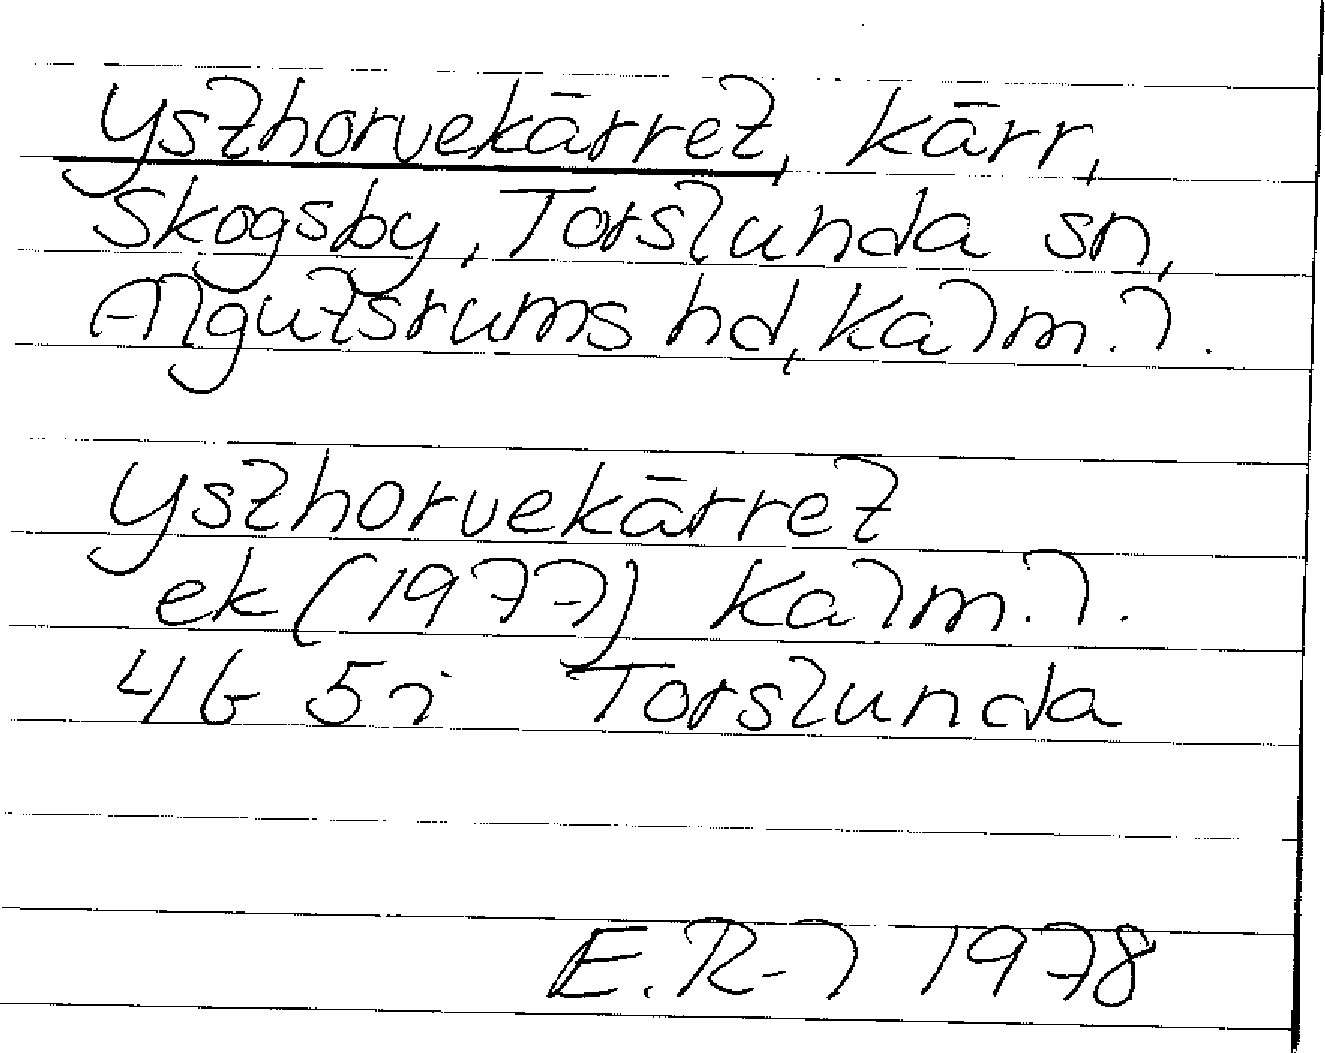 Ysthorvekärret, kärr,
Skogsby, Torslunda sn,
Algutsrums hd, Kalm. l.
Ysthorvekärret
ek (1977) Kalm. l.
4G 5i Torslunda
E.R-l 1978